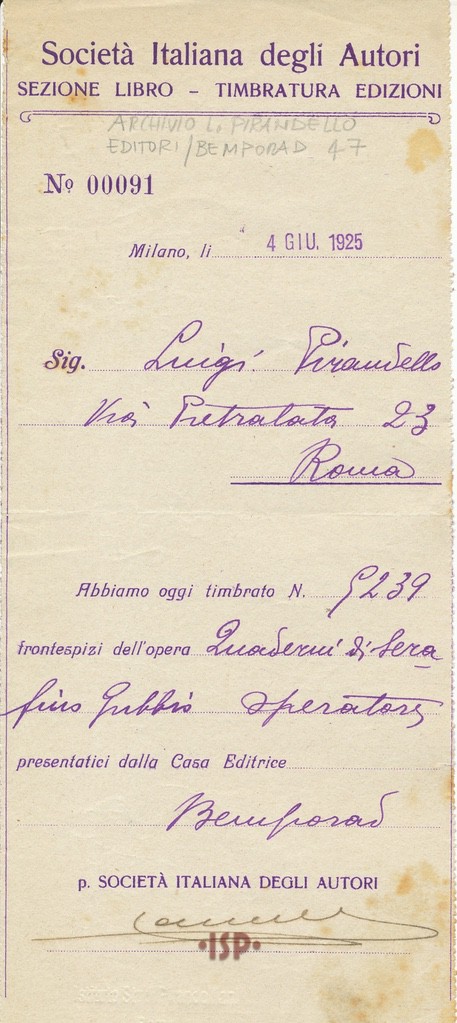 Società Italiana degli Autori
SEZIONE LIBRO – TIMBRATURA EDIZIONI
ARCHIVIO L. PIRANDELLO
EDITORI/BEMPORAD 47
No 00091
Milano, li 4 GIU. 1925
Sig. Luigi Pirandello
Via Pietralata 23
Roma
Abbiamo oggi timbrato N. 5239
frontespizi dell'opera Quaderni di Sera
fino Gubbio operatore
presentatici dalla Casa Editrice
Bemporad
p. SOCIETÀ ITALIANA DEGLI AUTORI
•ISP•